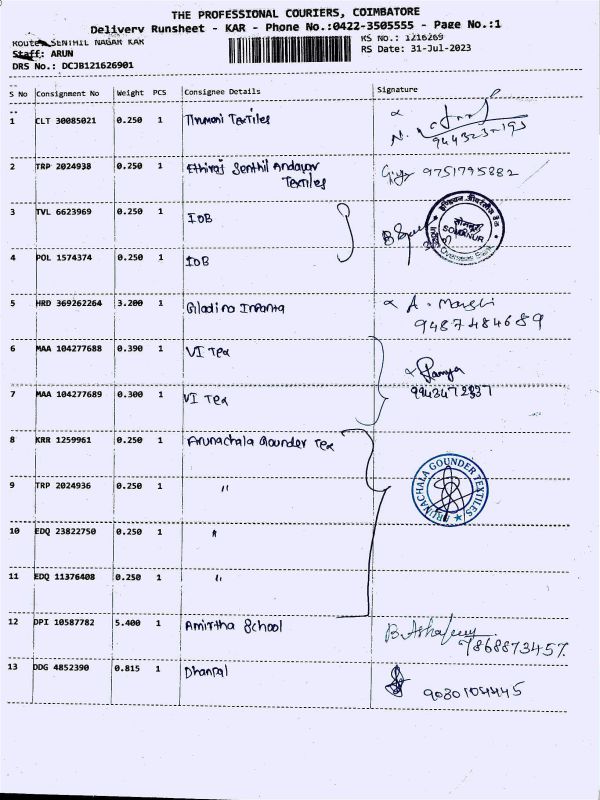 THE PROFESSIONAL COURIERS, COIMBATORE
Delivery Runsheet - KAR - Phone No.:0422-3505555 - Page No.:1
Route: SENTHIL NAGAR KAR
RS No.: 1216269
Staff: ARUN
RS Date: 31-Jul-2023
DRS No.: DCJB121626901
S No Consignment No Weight PCS Consignee Details Signature
1 CLT 30085021 0.250 1 Tirumani Textiles
2 TRP 2024938 0.250 1 Ethiraj Senthil Andavar
Textiles
9751795882
3 TVL 6623969 0.250 1 IOB
सोमनूर
SOMANUR
Overseas Bank
4 POL 1574374 0.250 1 IOB
5 HRD 369262264 3.200 1 Giladino Infanta
9487484689
6 MAA 104277688 0.390 1 VI Tex
Ramya
9943472337
7 MAA 104277689 0.300 1 VI Tex
8 KRR 1259961 0.250 1 Arunachala Gounder Tex
ARUNACHALA GOUNDER TEXTILES
9 TRP 2024936 0.250 1 "
10 EDQ 23822750 0.250 1 "
11 EDQ 11376408 0.250 1 "
12 DPI 10587782 5.400 1 Amirtha School
7868873457
13 DDG 4852390 0.815 1 Dhanpal